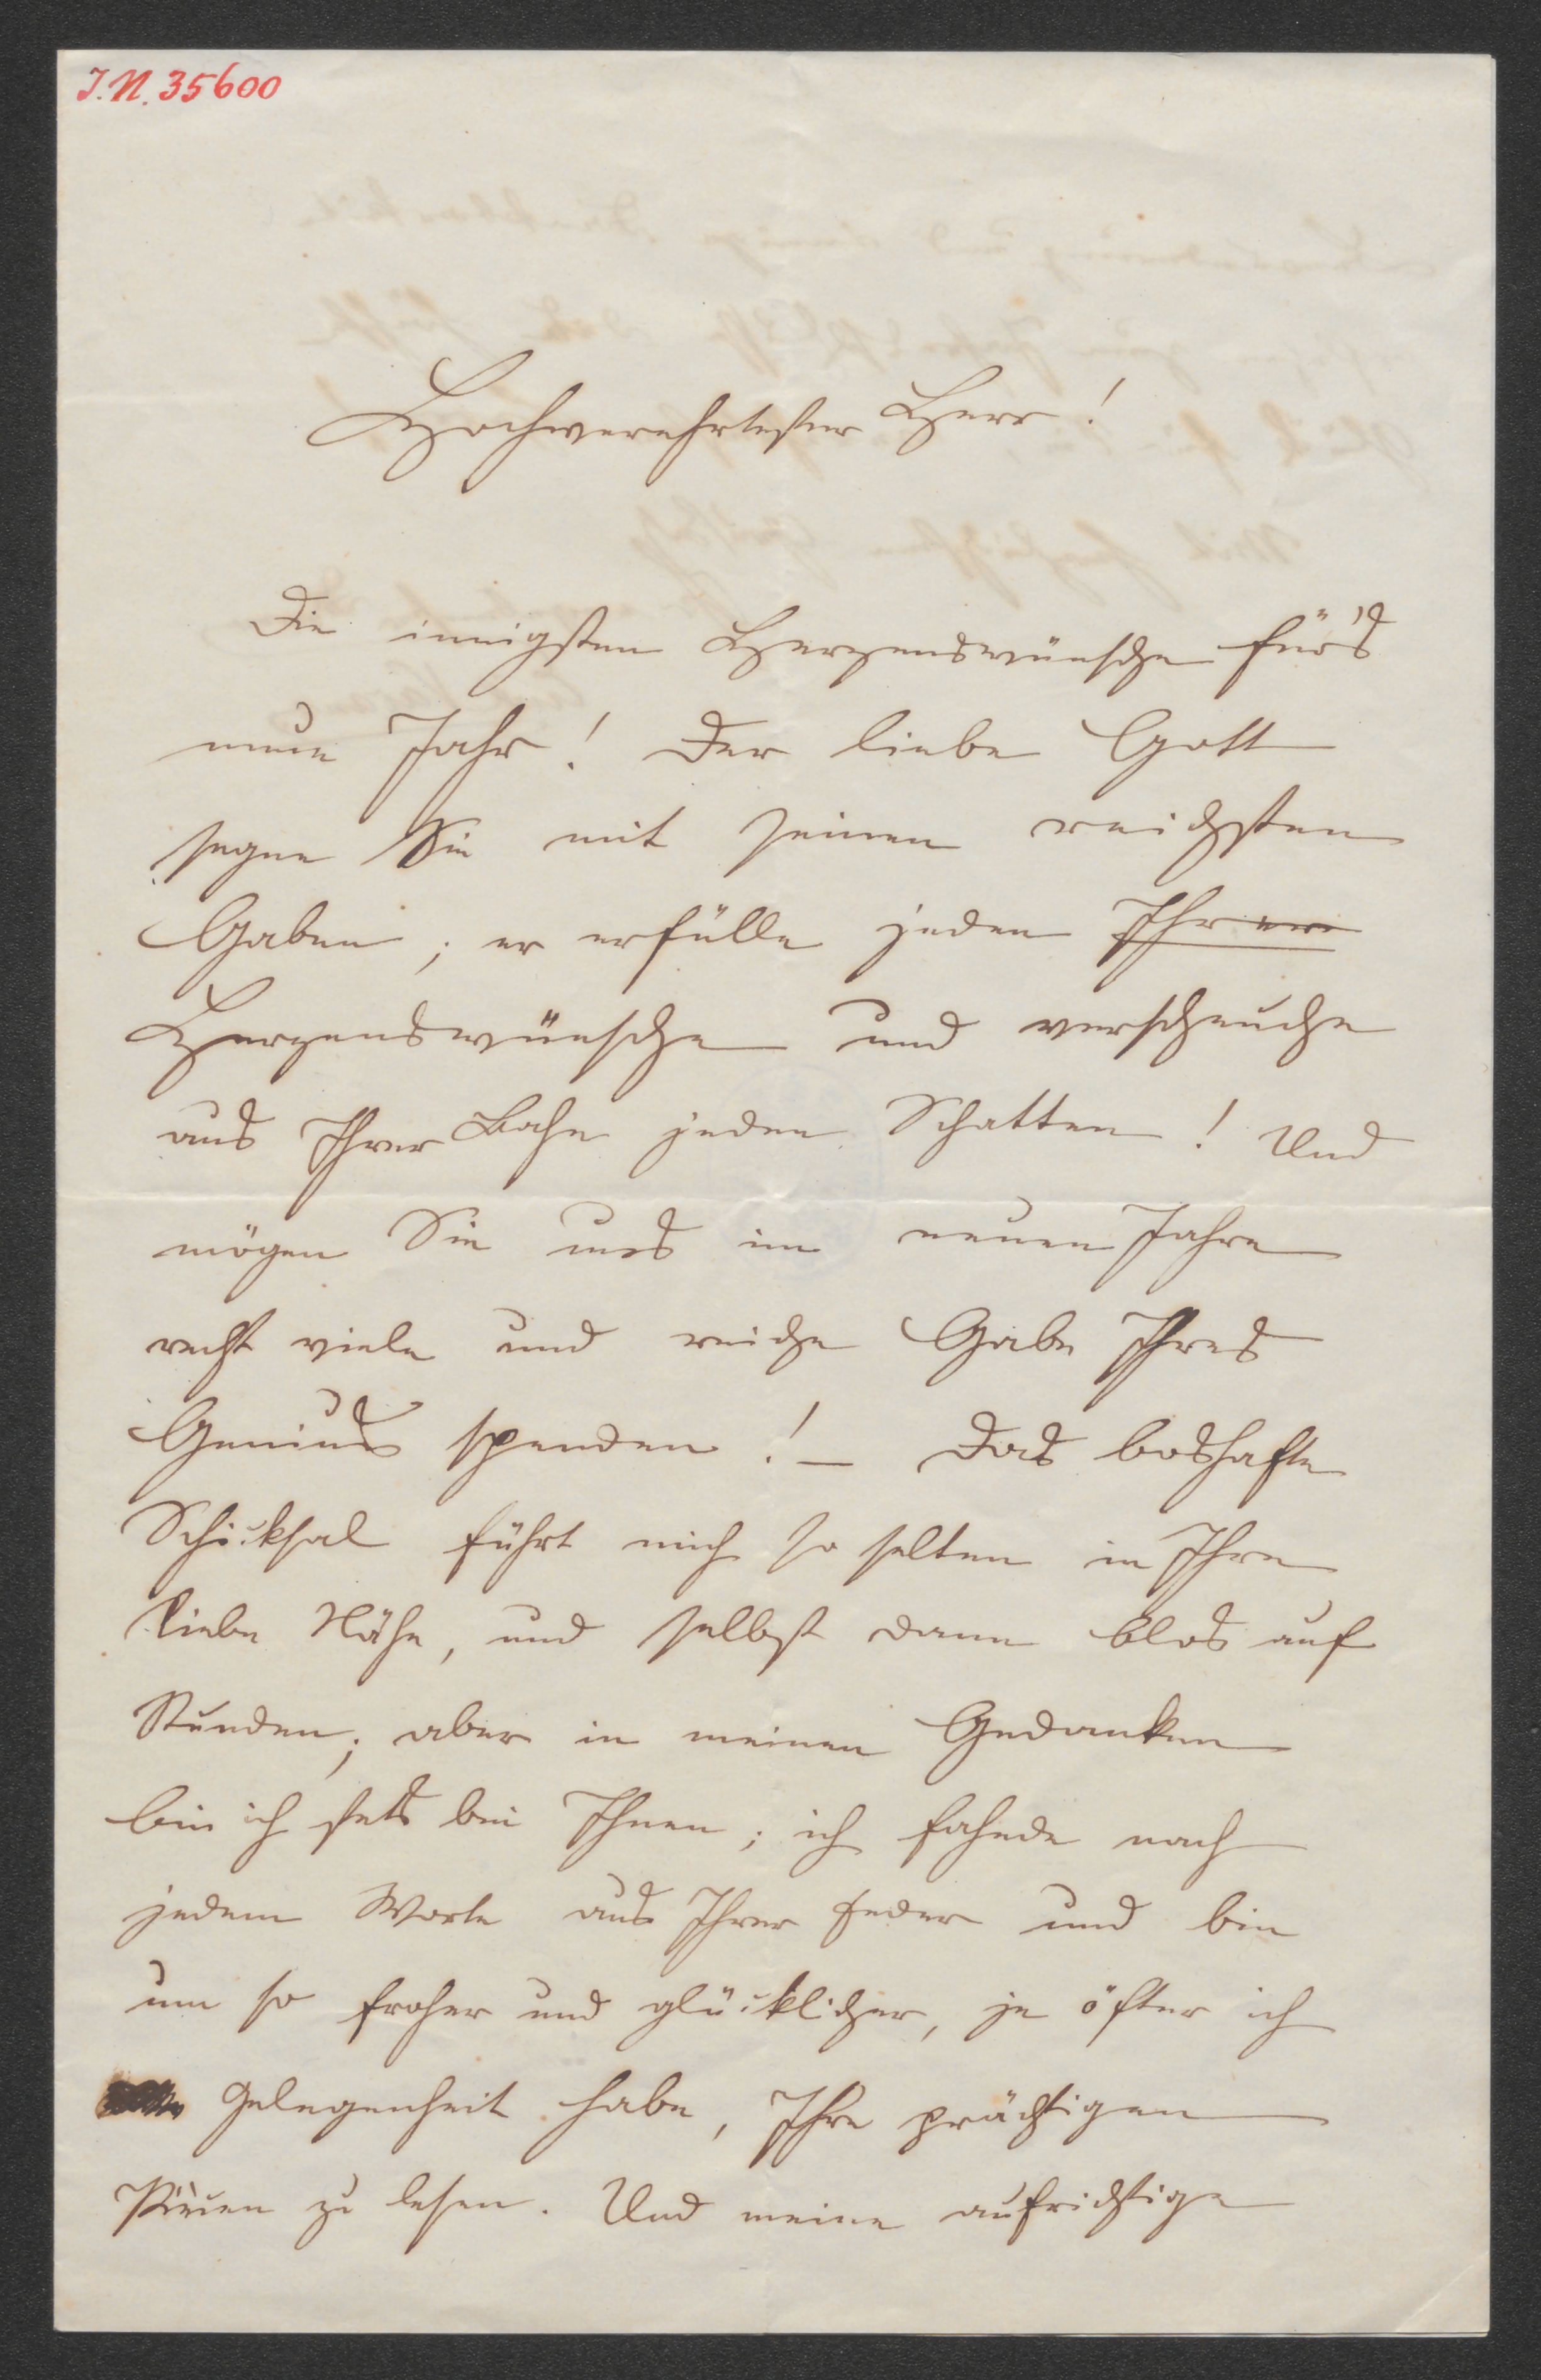 J.N. 35600
Hochverehrtester Herr!
Die innigsten Herzenswünsche für's
neue Jahr! Der liebe Gott
segne Sie mit seinen reichsten
Gaben; er erfülle jeden Ihrer
Herzenswünsche und verscheuche
aus Ihrer Bahn jeden Schatten! Und
mögen Sie uns im neuen Jahre
recht viele und reiche Gabe Ihres
Genius spenden! – Das boshafte
Schicksal führt mich so selten in Ihre
liebe Nähe, und selbst dann blos auf
Stunden; aber in meinen Gedanken
bin ich stets bei Ihnen; ich fahnde nach
jedem Worte aus Ihrer Feder und bin
um so froher und glücklicher, je öfter ich
Gelegenheit habe, Ihre prächtigen
zu lesen. Und meine aufrichtige